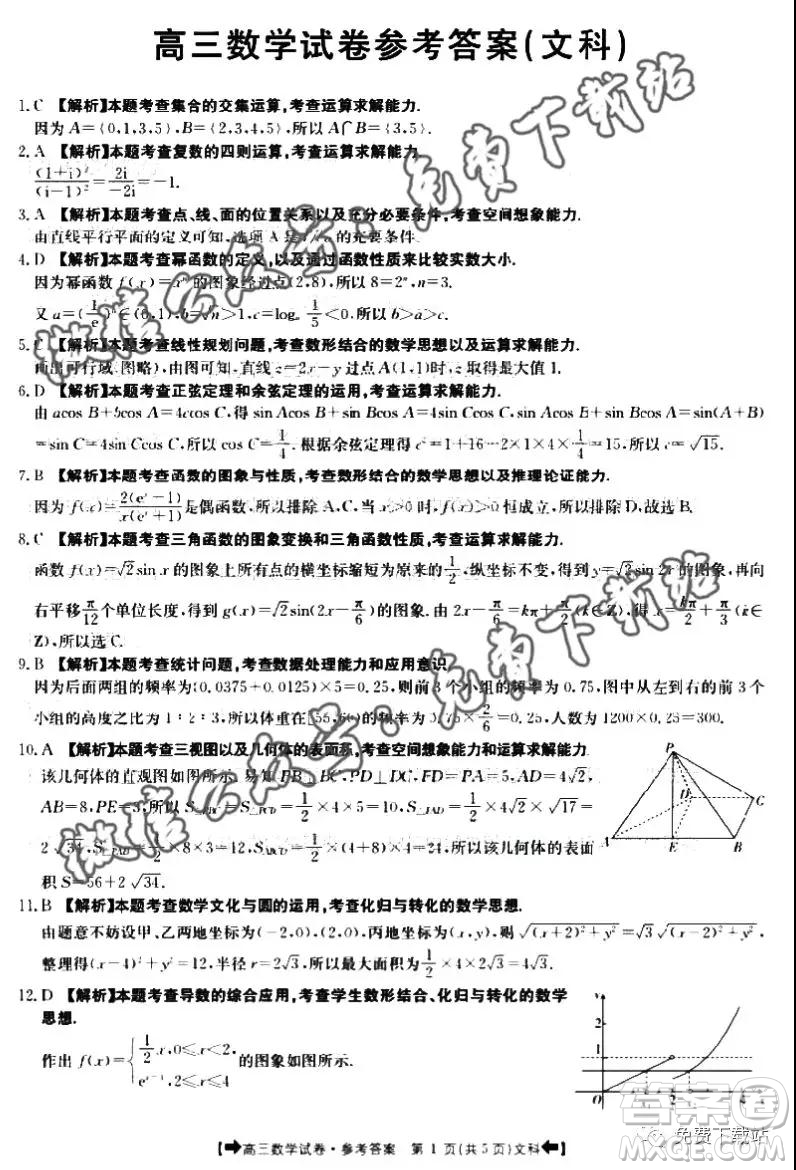 高三数学试卷参考答案(文科)
1.C 【解析】本题考查集合的交集运算,考查运算求解能力.
因为A={0,1,3,5},B={2,3,4,5},所以A∩B={3,5}.
2.A 【解析】本题考查复数的四则运算,考查运算求解能力.
(1+i)²/(i-1)²=2i/-2i=-1.
3.A 【解析】本题考查点、线、面的位置关系以及充分必要条件,考查空间想象能力.
由直线平行平面的定义可知,选项A是 的充要条件.
4.D 【解析】本题考查幂函数的定义,以及通过函数性质来比较实数大小.
因为幂函数f(x)=xⁿ的图象经过点(2,8),所以8=2ⁿ,n=3.
又a=(1/e)ⁿ∈(0,1),b=√n>1,c=logₙ1/5<0,所以b>a>c.
5.C 【解析】本题考查线性规划问题,考查数形结合的数学思想以及运算求解能力.
画出可行域(图略),由图可知,直线z=2x-y过点A(1,1)时,z取得最大值1.
6.D 【解析】本题考查正弦定理和余弦定理的运用,考查运算求解能力.
由acos B+bcos A=4ccos C,得sin Acos B+sin Bcos A=4sin Ccos C,sin Acos B+sin Bcos A=sin(A+B)
=sin C=4sin Ccos C,所以cos C=1/4.根据余弦定理得c²=1+16-2×1×4×1/4=15,所以c=√15.
7.B 【解析】本题考查函数的图象与性质,考查数形结合的数学思想以及推理论证能力.
因为f(x)=2(eˣ-1)/x(eˣ+1)是偶函数,所以排除A,C,当x>0时,f(x)>0恒成立,所以排除D,故选B.
8.C 【解析】本题考查三角函数的图象变换和三角函数性质,考查运算求解能力.
函数f(x)=√2sin x的图象上所有点的横坐标缩短为原来的1/2,纵坐标不变,得到y=√2sin 2x的图象,再向
右平移π/12个单位长度,得到g(x)=√2sin(2x-π/6)的图象.由2x-π/6=kπ+π/2(k∈Z),得x=kπ/2+π/3(k∈
Z),所以选C.
9.B 【解析】本题考查统计问题,考查数据处理能力和应用意识.
因为后面两组的频率为(0.0375+0.0125)×5=0.25,则前3个小组的频率为0.75,图中从左向右的前3个
小组的高度之比为1:2:3,所以体重在[55,60)的频率为0.75×2/6=0.25,人数为1200×0.25=300.
10.A 【解析】本题考查三视图以及几何体的表面积,考查空间想象能力和运算求解能力.
该几何体的直观图如图所示.易知PB⊥BC,PD⊥DC,PD=PA=5,AD=4√2,
AB=8,PE=3,所以 =1/2×4×5=10, =1/2×4√2×√17=
2√34, =1/2×8×3=12, =1/2×(4+8)×4=24,所以该几何体的表面
积S=56+2√34.
P
D
C
A
E
B
11.B 【解析】本题考查数学文化与圆的运用,考查化归与转化的数学思想.
由题意不妨设甲、乙两地坐标为(-2,0),(2,0),丙地坐标为(x,y),则√(x+2)²+y²=√3√(x-2)²+y²,
整理得(x-4)²+y²=12,半径r=2√3,所以最大面积为1/2×4×2√3=4√3.
12.D 【解析】本题考查导数的综合应用,考查学生数形结合、化归与转化的数学
思想.
作出f(x)={1/2x,0≤x<2, 的图象如图所示.
,2≤x≤4
y
2
1
O
➡高三数学试卷·参考答案 第1页(共5页)文科⬅
微信公众号:免费下载站
微信公众号:免费下载站
答案圈
免费下载站